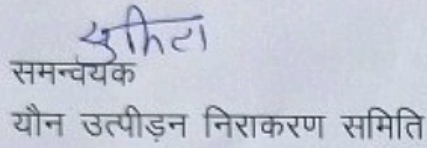 सुनीता
समन्वयक
यौन उत्पीड़न निराकरण समिति